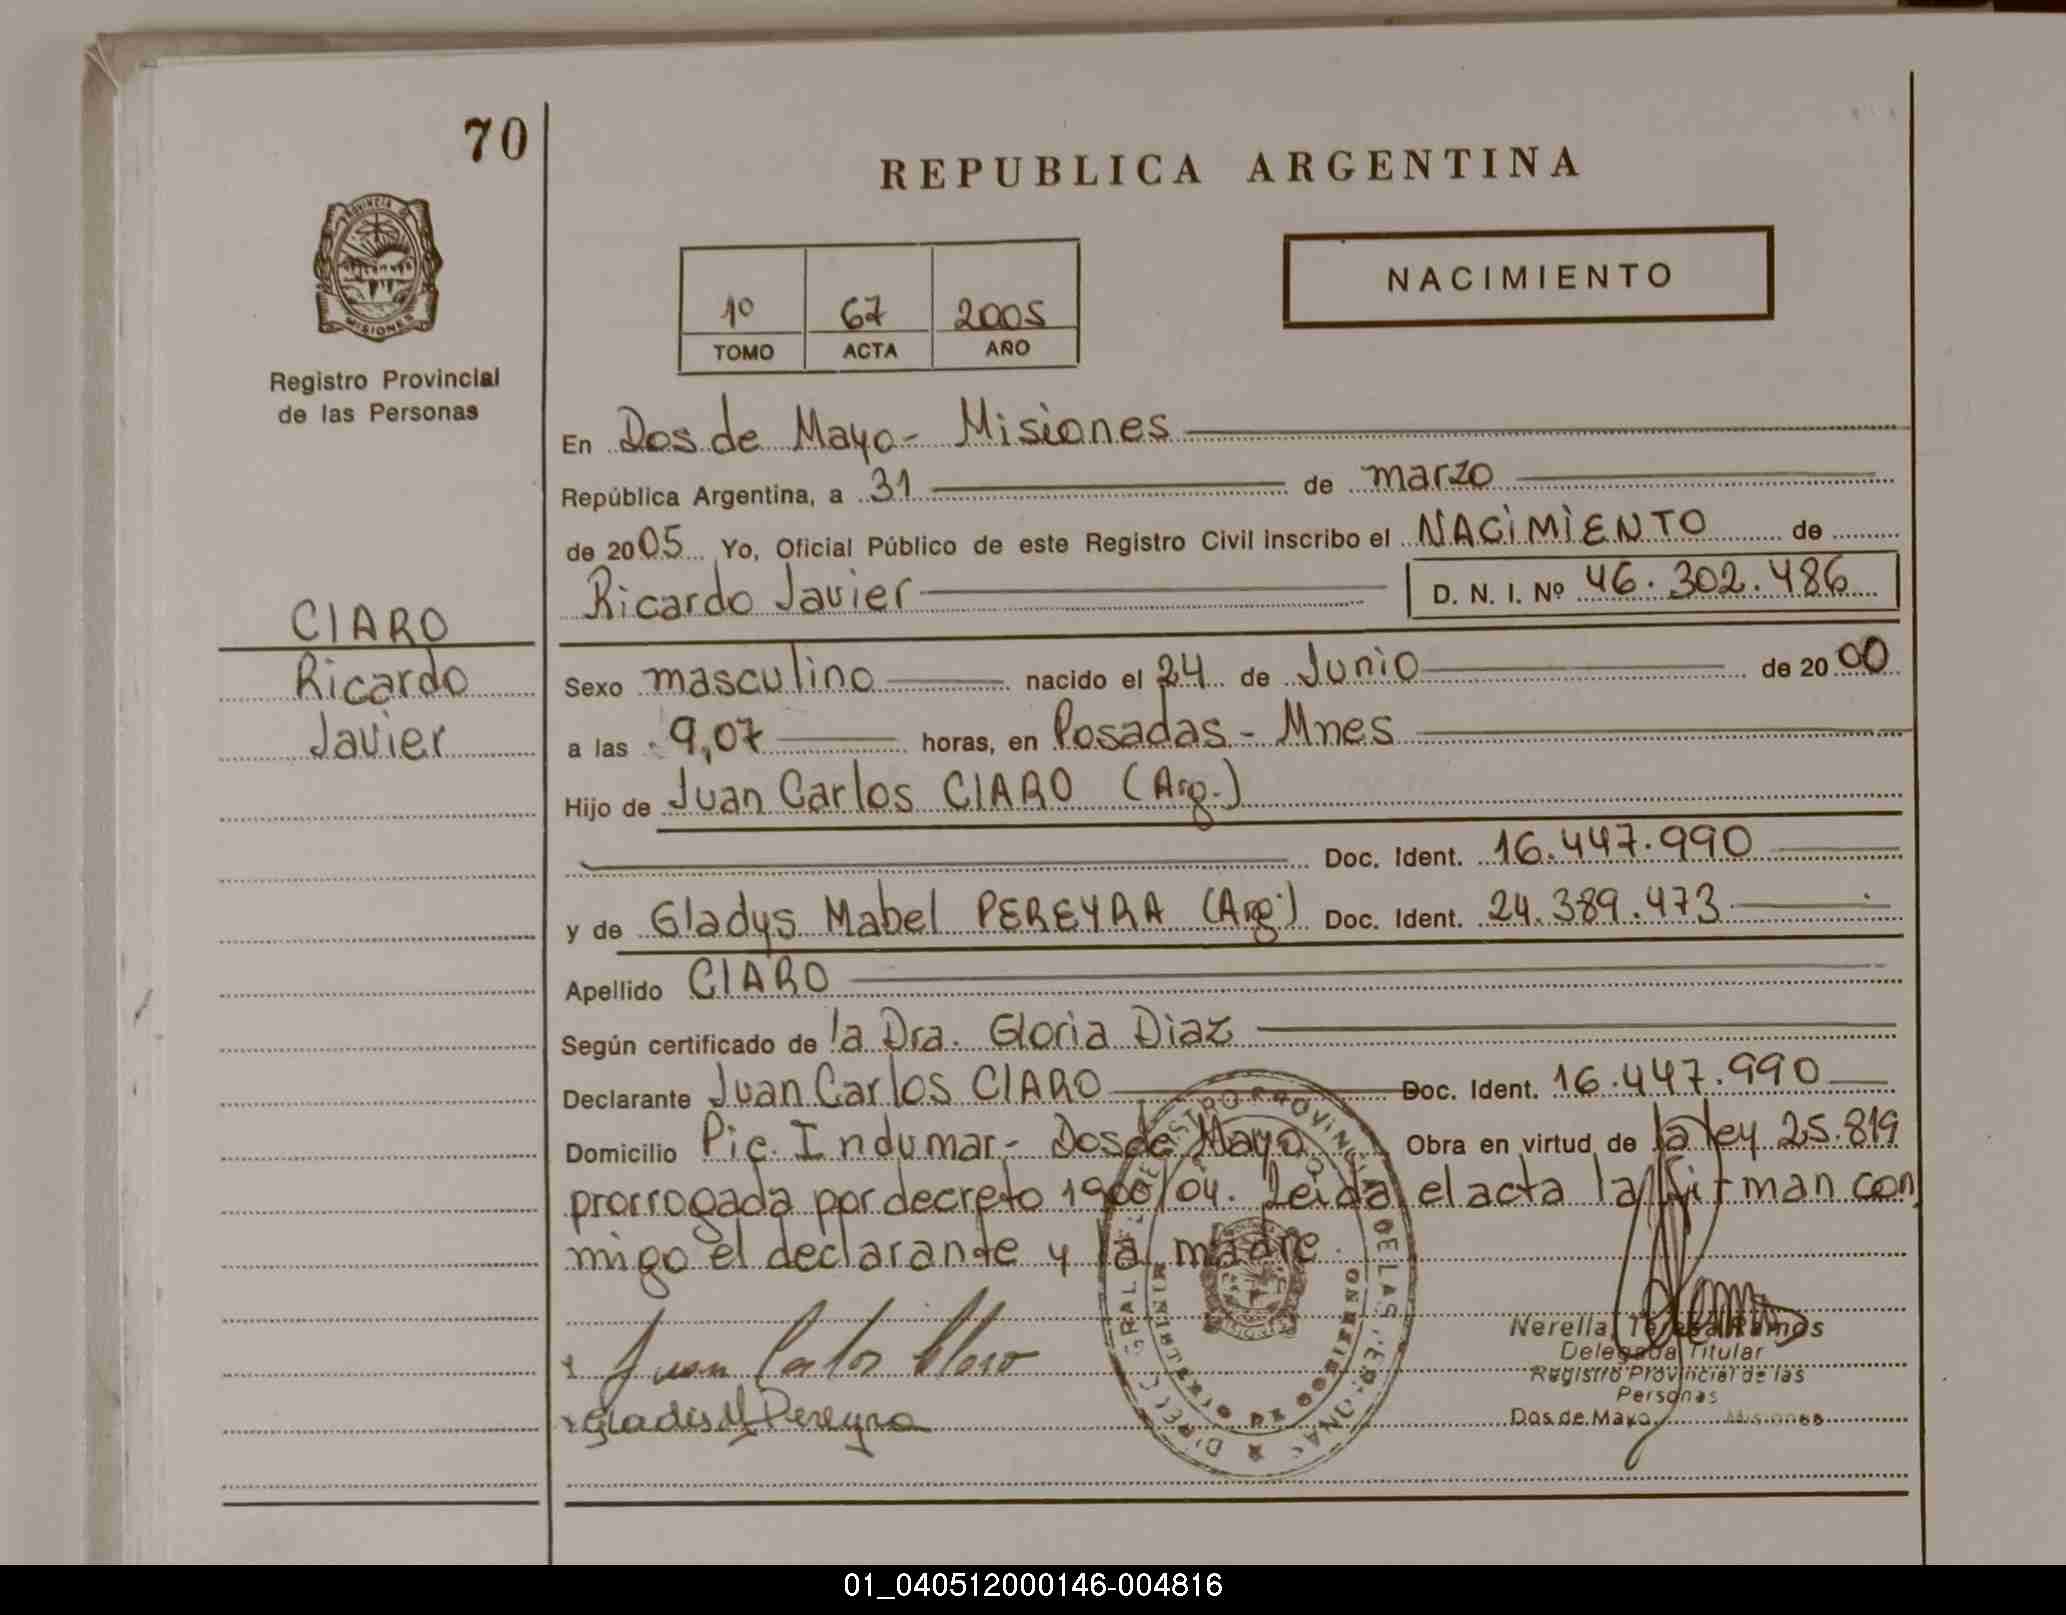 70
REPUBLICA ARGENTINA
PROVINCIA DE
MISIONES
Registro Provincial
de las Personas
1º 67 2005
TOMO ACTA AÑO
NACIMIENTO
En Dos de Mayo- Misiones
República Argentina, a 31 de marzo
de 2005 Yo, Oficial Público de este Registro Civil inscribo el NACIMIENTO de
Ricardo Javier D. N. I. Nº 46.302.486
CLARO
Ricardo
Javier
Sexo masculino nacido el 24 de Junio de 2000
a las 9,07 horas, en Posadas - Mnes
Hijo de Juan Carlos CLARO (Arg.)
Doc. Ident. 16.447.990
y de Gladys Mabel PEREYRA (Arg.) Doc. Ident. 24.389.473
Apellido CLARO
Según certificado de la Dra. Gloria Diaz
Declarante Juan Carlos CLARO Doc. Ident. 16.447.990
Domicilio Pic. Indumar- Dos de Mayo Obra en virtud de la ley 25.819
prorrogada por decreto 1900/04. Leida el acta la firman con
migo el declarante y la madre.
Juan Carlos Claro
Gladis M Pereyra
Nerella Teresa Ramos
Delegada Titular
Registro Provincial de las
Personas
Dos de Mayo Misiones
01_040512000146-004816